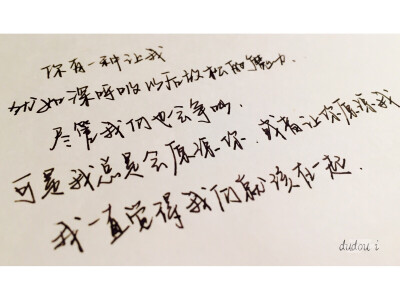 你有一种让我
犹如深呼吸以后放松的魔力.
尽管我们也会争吵,
可是我总是会原谅你.或者让你原谅我
我一直觉得我们就该在一起.
dudou i